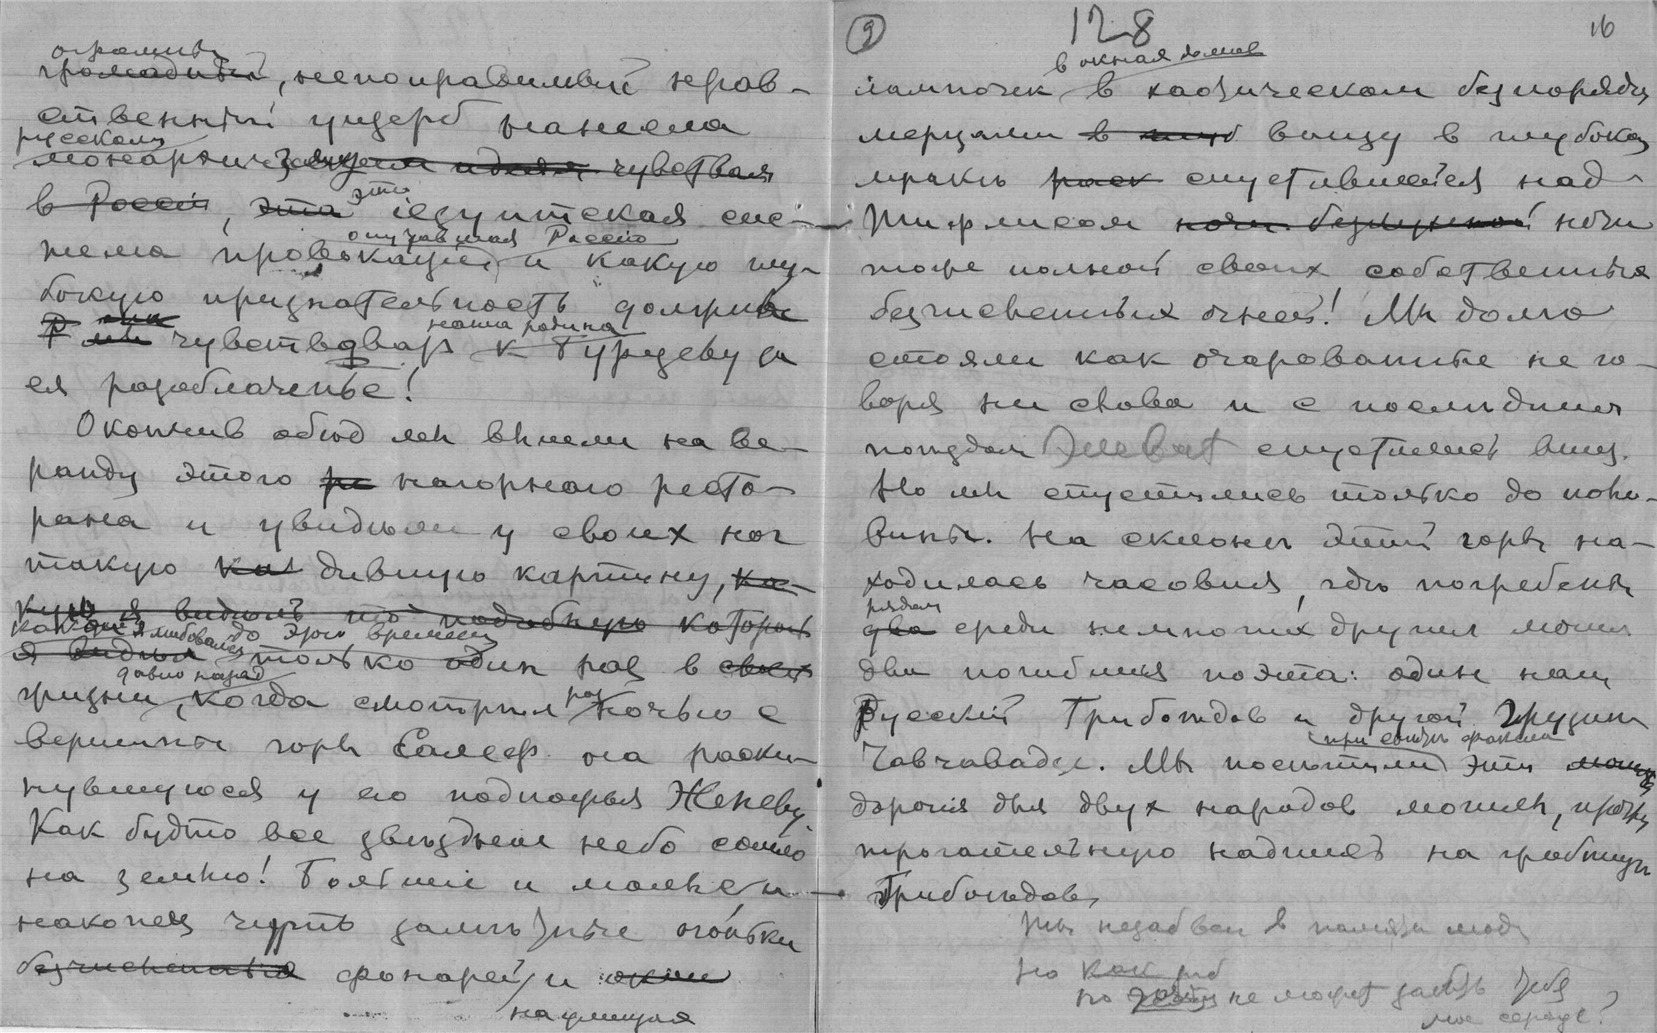 огромный
громадный, непоправимый нрав-
ственный ущерб нанесла
русскому
чувствам
в России, эта эта iезуитская сис-
опутавшая Россию
тема провокации, и какую глу-
бокую признательность должна
наша родина
чувствовать к Бурцеву за
ея разоблаченье!
Окончив обед мы вышли на ве-
ранду этого нагорного ресто-
рана и увидели у своих ног
такую дивную картину, ка-
кую я видел подобную которой
какой я любовался до этого времени
я видел только один раз в своей
давно назад
жизни, когда смотрел раз ночью с
вершины горы Салев на раски-
нувшуюся у его подножья Женеву.
Как будто все звездное небо сошло
на землю! Большие и малень-
наконец чуть заметные огоньки
безчисленных фонарей и окон
на улицах
9 128 16
в окнах домов
лампочек в хаотическом безпорядке
мерцали в внизу в глубоком
мраке спустившейся над
Тифлисом ночи безлунной ночи
тоже полной своих собственных
безчисленных огней! Мы долго
стояли как очарованные не го-
воря ни слова и с последним
поездом спустились вниз.
Но мы спустились только до поло-
вины. На склоне этой горы на-
ходилась часовня, где погребены
рядом
два среди немногих других могил
два погибших поэта: один наш
Русский Грибоедов и другой Грузин
при свете факела
Чавчавадзе. Мы посетили эти
дорогия для двух народов могилы, прочли
трогательную надпись на гробнице
Грибоедова
Ты незабвен в памяти людей
но как
но не может забыть тебя
мое сердце?